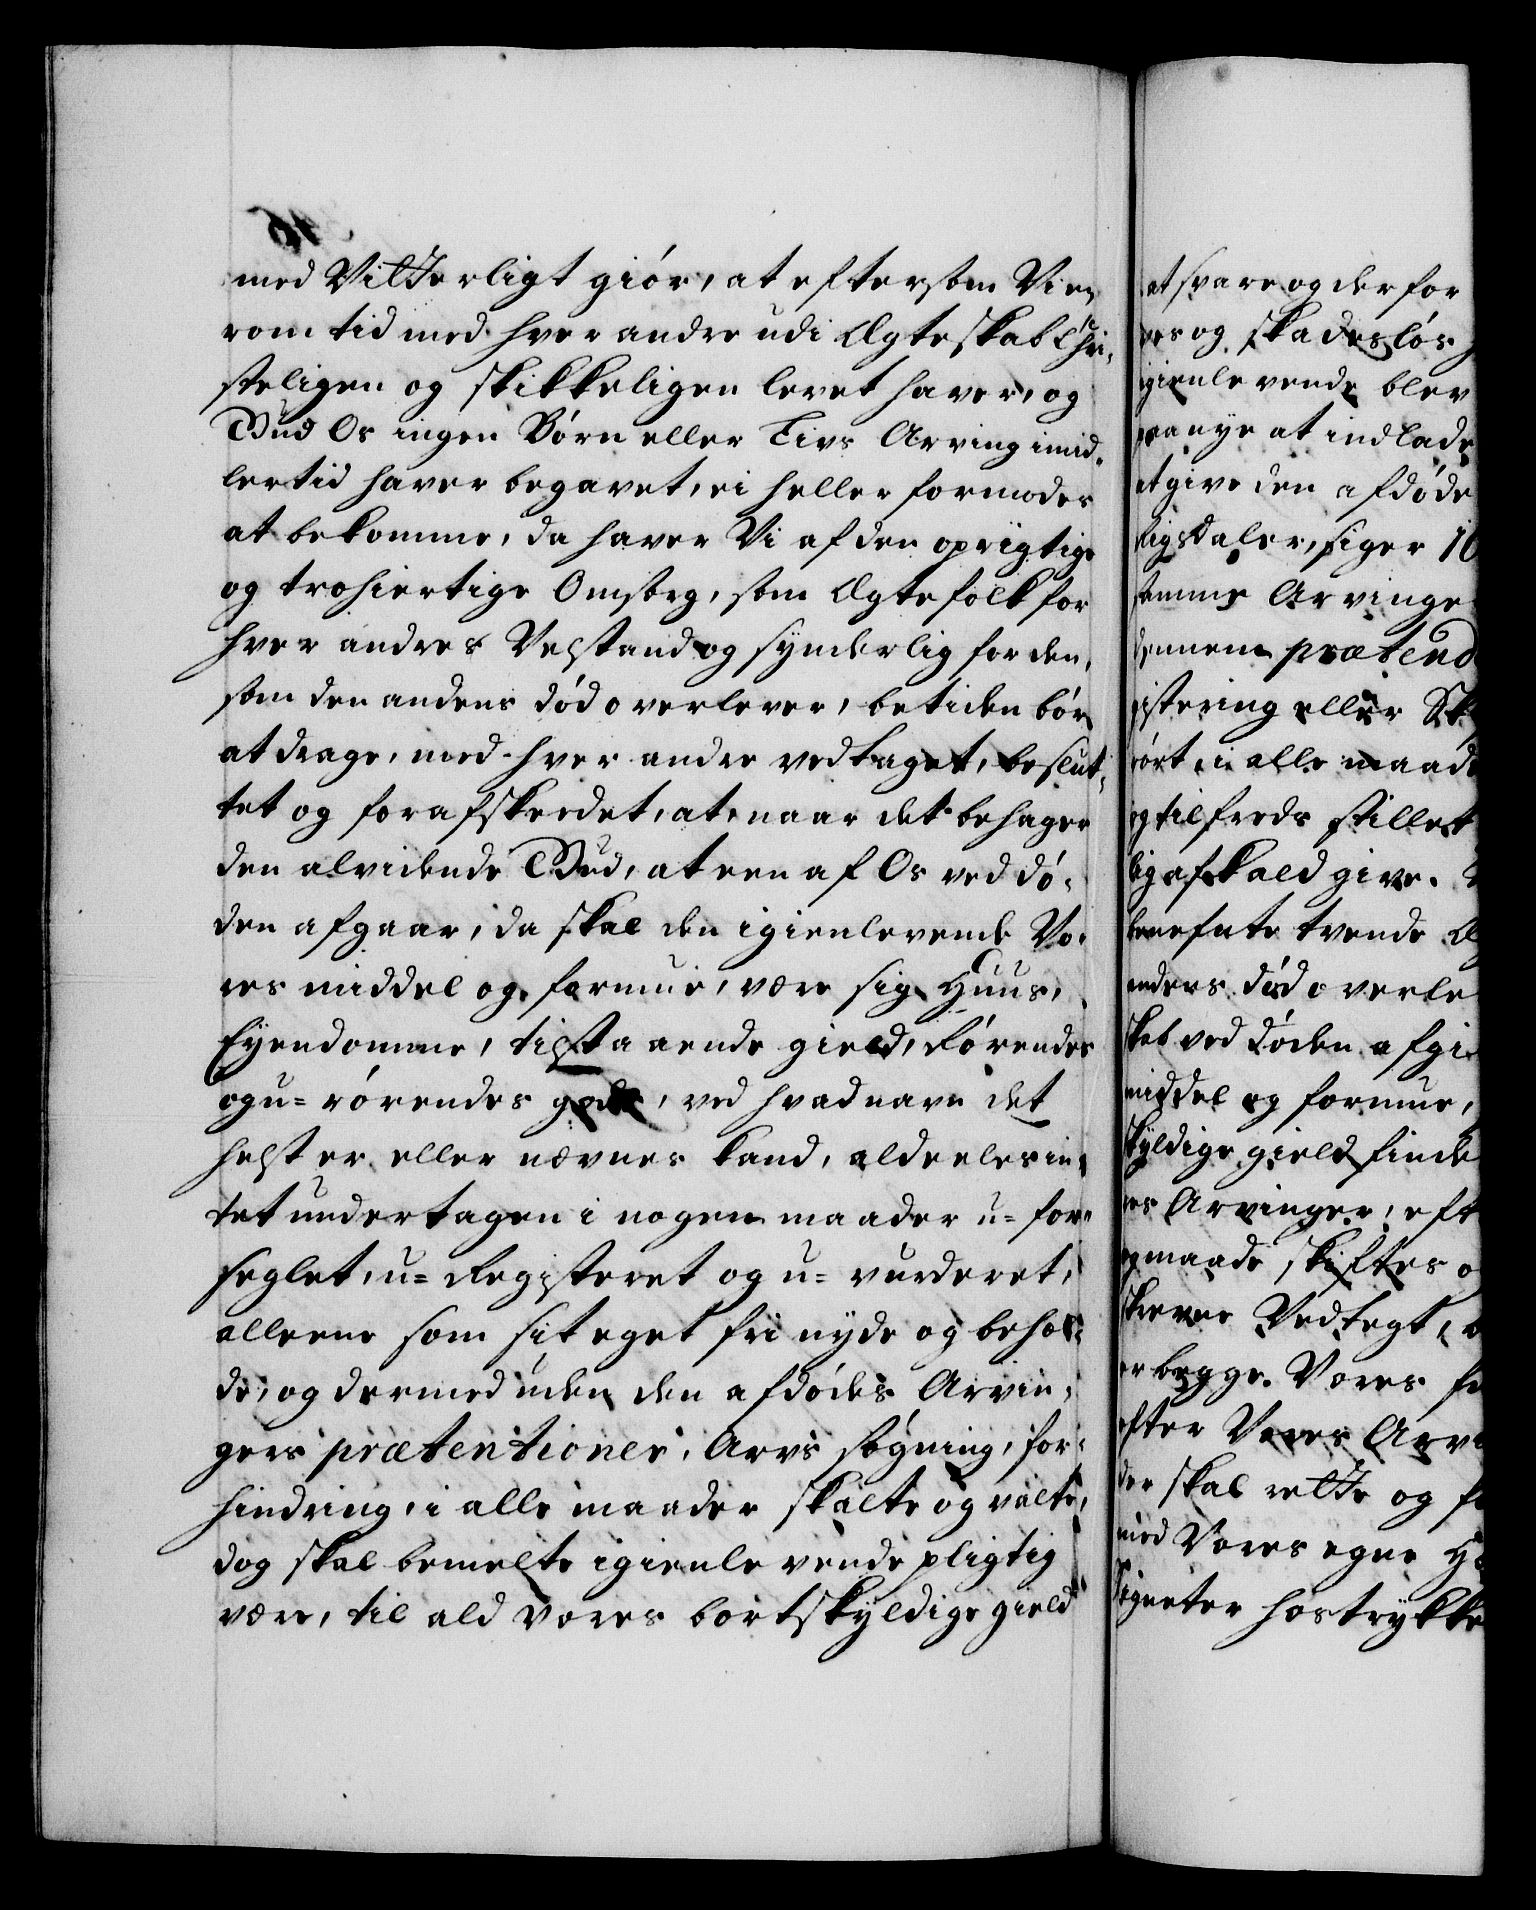 med Vitterligt giör, at eftersom Vi en
rom tid med hver andre udi Ægteskab Chri-
steligen og skikkeligen levet haver, og
Gud Os ingen Börn eller Livs Arving imid-
lertid haver begavet, ei heller formodes
at bekomme, da haver Vi af den oprigtige
og trohiertige Omsorg, som Ægtefolk for
hver andres Velstand og synderlig for den,
som den andens död overlever, betiden bör
at drage, med hver andre vedtaget, beslut-
tet og forafskeedet, at, naar det behager
den alvidende Gud, at een af Os ved dö-
den afgaar, da skal den igienlevende Vo-
res middel og formue, være sig Huus,
Eyendomme, tilstaaende gield, Rörendes
og u-rörendes gods, ved hvad navn det
helst er eller nævnes kand, aldeeles in-
tet undertagen i nogen maader u-for-
seglet, u-Registeret og u-vurderet,
alleene som sit eget fri nyde og behol-
de, og dermed uden den afdödes Arvin-
gers prætentioner, Arvs sögning, for-
hindring, i alle maader skalte og valte,
dog skal bemelte igienlevende pligtig
være, til ald vores bortskyldige gield
at svare og derfor
res og skadeslös
gienlevende blev
paa nye at indlade
at give den afdöde
Rigsdaler, siger 10
samme Arvinge
dennem prætend
gistering eller Sk
rört, i alle maade
og tilfreds stillet
lig afkald give.
benefnte tvende Æ
andens död overle
skab ved döden afgi
middel og formue,
skyldige gield finde
res Arvinger, eft
og maade skiftes o
skrevne Vedtegt,
er begge Vores
efter Vores Arvi
der skal rette og
med Vores egne H
Signeter hostrykke